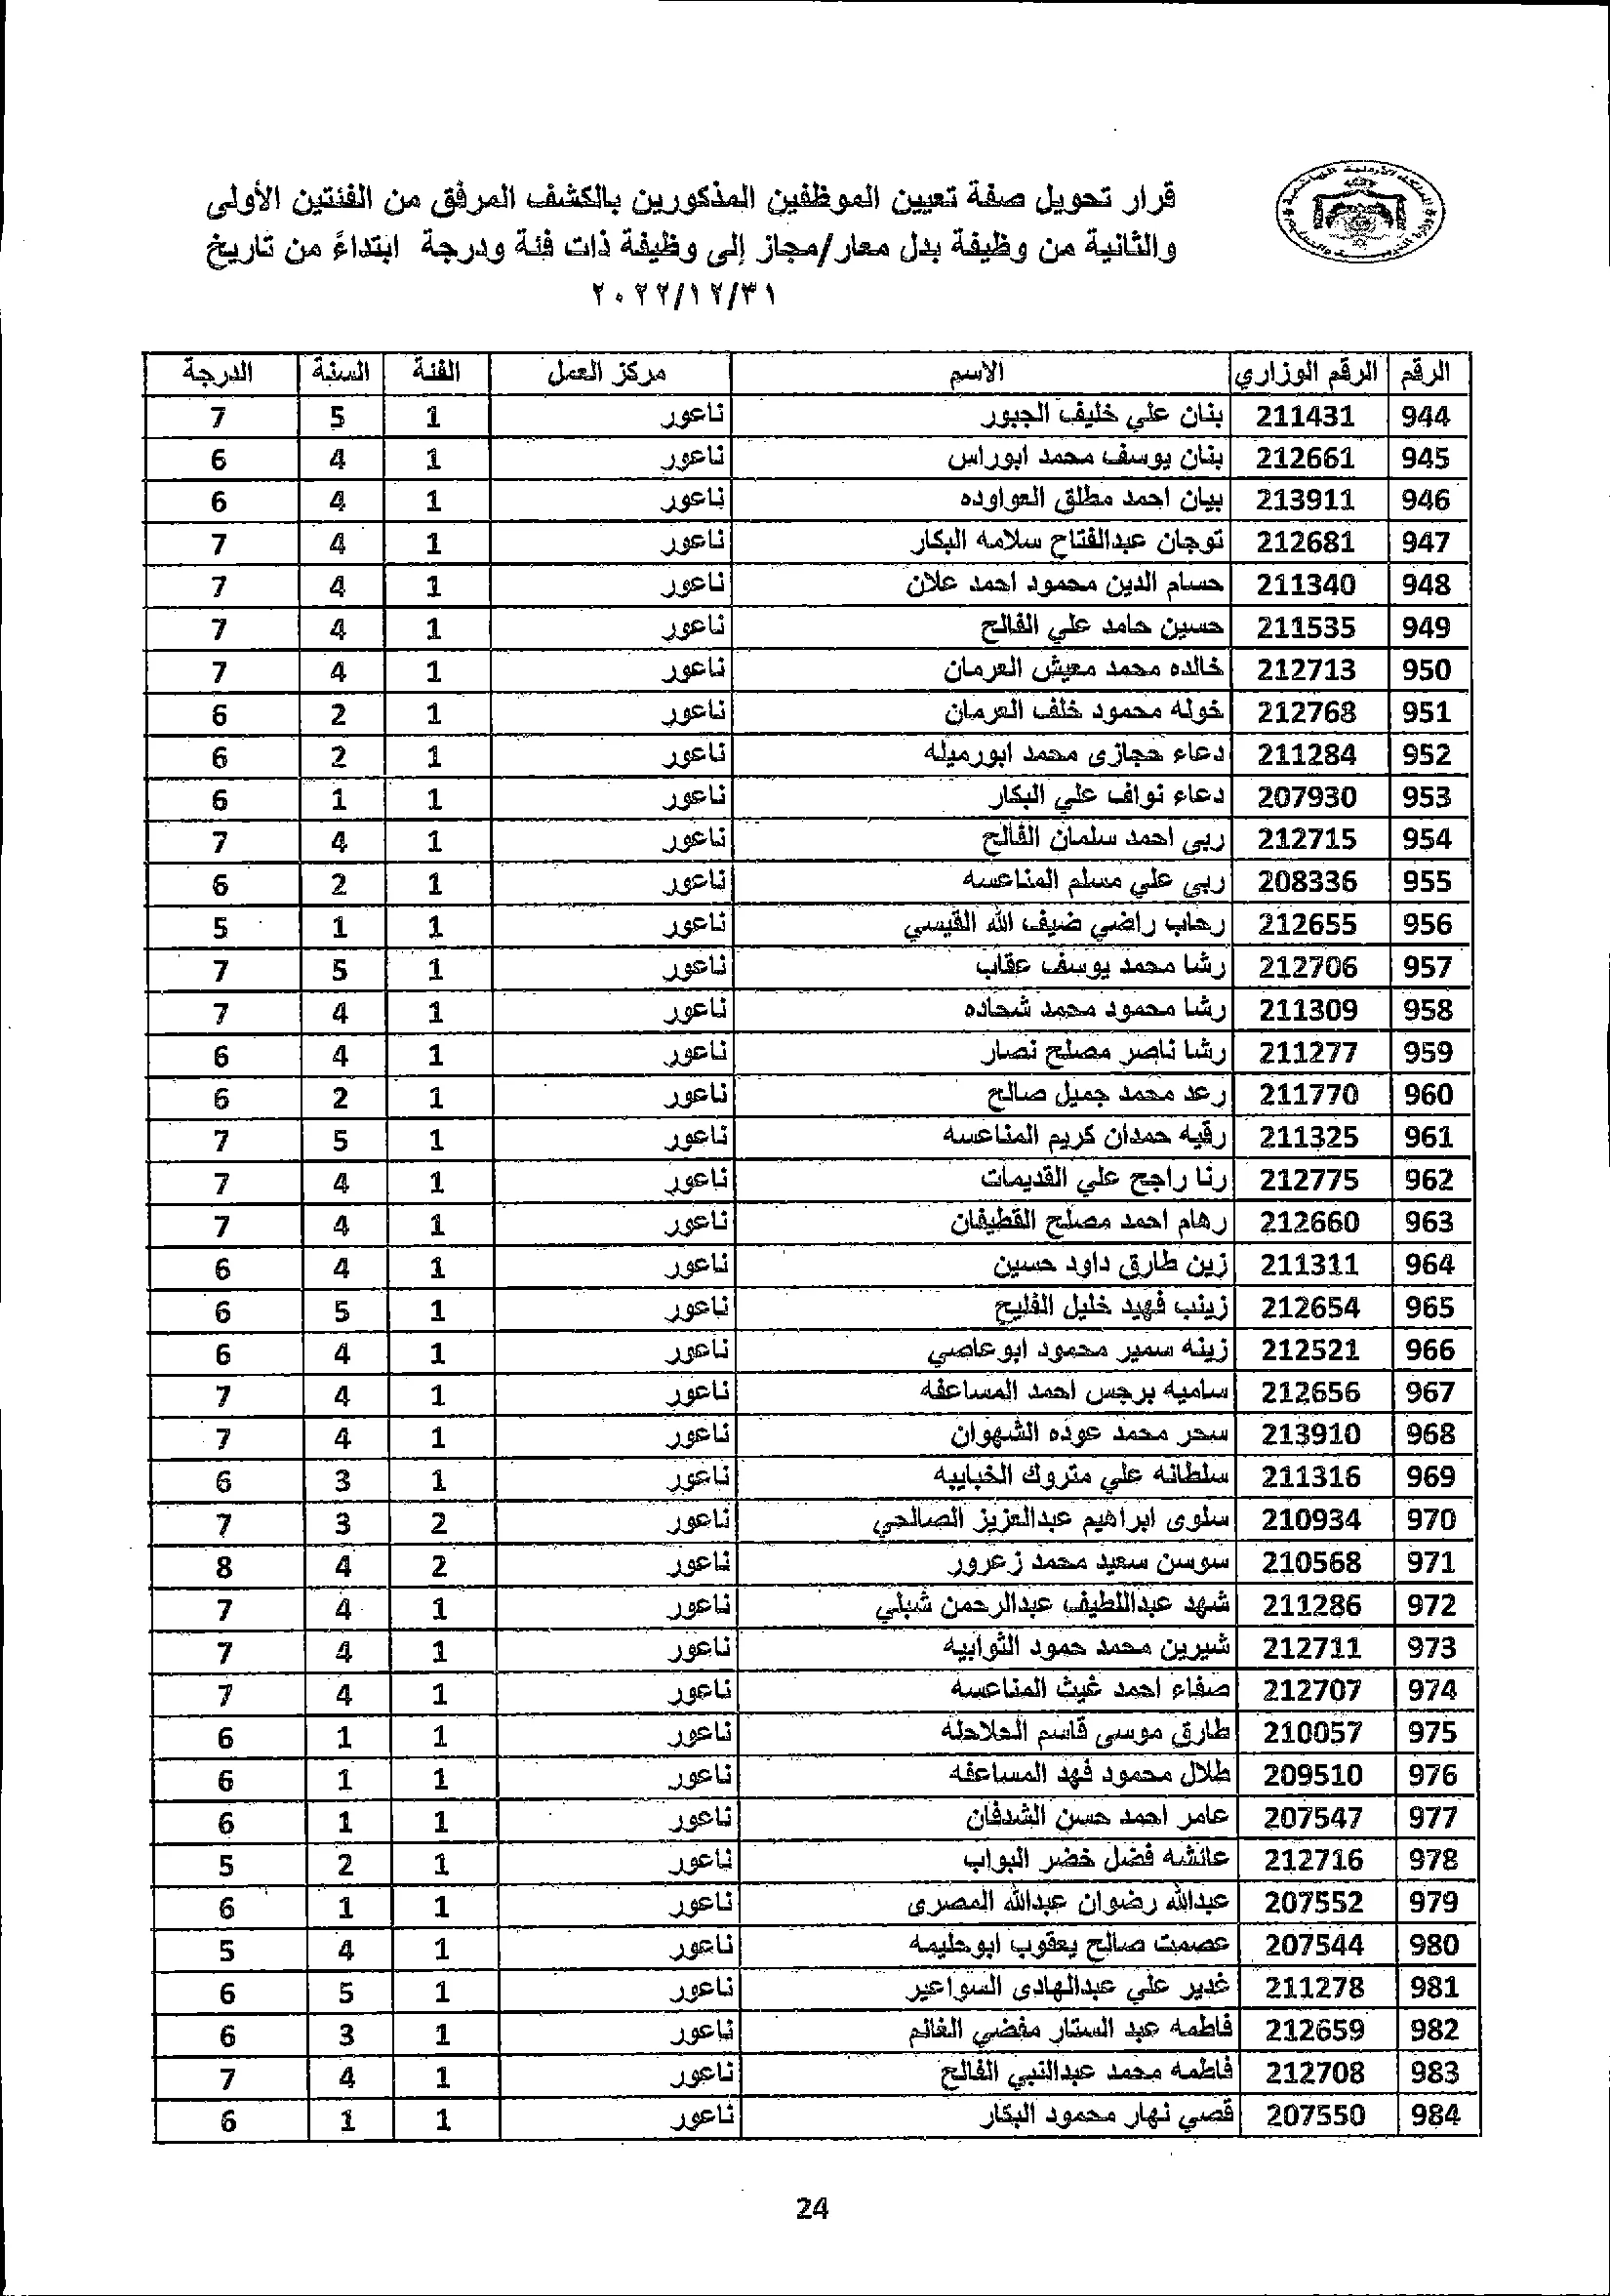 قرار تحويل صفة تعيين الموظفين المذكورين بالكشف المرفق من الفئتين الأولى
والثانية من وظيفة بدل معار/مجاز إلى وظيفة ذات فئة ودرجة ابتداءً من تاريخ
٢٠٢٢/١٢/٣١
الرقم الرقم الوزاري الاسم مركز العمل الفئة السنة الدرجة
944 211431 بنان علي خليف الجبور ناعور 1 5 7
945 212661 بنان يوسف محمد ابوراس ناعور 1 4 6
946 213911 بيان احمد مطلق العواوده ناعور 1 4 6
947 212681 توجان عبدالفتاح سلامه البكار ناعور 1 4 7
948 211340 حسام الدين محمود احمد علان ناعور 1 4 7
949 211535 حسين حامد علي الفالح ناعور 1 4 7
950 212713 خالده محمد معيش العرمان ناعور 1 4 7
951 212768 خوله محمود خلف العرمان ناعور 1 2 6
952 211284 دعاء حجازى محمد ابورميله ناعور 1 2 6
953 207930 دعاء نواف علي البكار ناعور 1 1 6
954 212715 ربى احمد سلمان الفالح ناعور 1 4 7
955 208336 ربى علي مسلم المناعسه ناعور 1 2 6
956 212655 رحاب راضي ضيف الله القيسي ناعور 1 1 5
957 212706 رشا محمد يوسف عقاب ناعور 1 5 7
958 211309 رشا محمود محمد شحاده ناعور 1 4 7
959 211277 رشا ناصر مصلح نصار ناعور 1 4 6
960 211770 رعد محمد جميل صالح ناعور 1 2 6
961 211325 رقيه حمدان كريم المناعسه ناعور 1 5 7
962 212775 رنا راجح علي القديمات ناعور 1 4 7
963 212660 رهام احمد مصلح القطيفان ناعور 1 4 7
964 211311 زين طارق داود حسين ناعور 1 4 6
965 212654 زينب فهيد خليل الفليح ناعور 1 5 6
966 212521 زينه سمير محمود ابوعاصي ناعور 1 4 6
967 212656 ساميه برجس احمد المساعفه ناعور 1 4 7
968 213910 سحر محمد عوده الشهوان ناعور 1 4 7
969 211316 سلطانه علي متروك الخباييه ناعور 1 3 6
970 210934 سلوى ابراهيم عبدالعزيز الصالحي ناعور 2 3 7
971 210568 سوسن سعيد محمد زعرور ناعور 2 4 8
972 211286 شهد عبداللطيف عبدالرحمن شبلي ناعور 1 4 7
973 212711 شيرين محمد حمود الثوابيه ناعور 1 4 7
974 212707 صفاء احمد غيث المناعسه ناعور 1 4 7
975 210057 طارق موسى قاسم الحلاحله ناعور 1 1 6
976 209510 طلال محمود فهد المساعفه ناعور 1 1 6
977 207547 عامر احمد حسن الشدفان ناعور 1 1 6
978 212716 عائشه فضل خضر البواب ناعور 1 2 5
979 207552 عبدالله رضوان عبدالله المصرى ناعور 1 1 6
980 207544 عصمت صالح يعقوب ابوحليمه ناعور 1 4 5
981 211278 غدير علي عبدالهادى السواعير ناعور 1 5 6
982 212659 فاطمه عبد الستار مفضي الغانم ناعور 1 3 6
983 212708 فاطمه محمد عبدالنبي الفالح ناعور 1 4 7
984 207550 قصي نهار محمود البكار ناعور 1 1 6
24